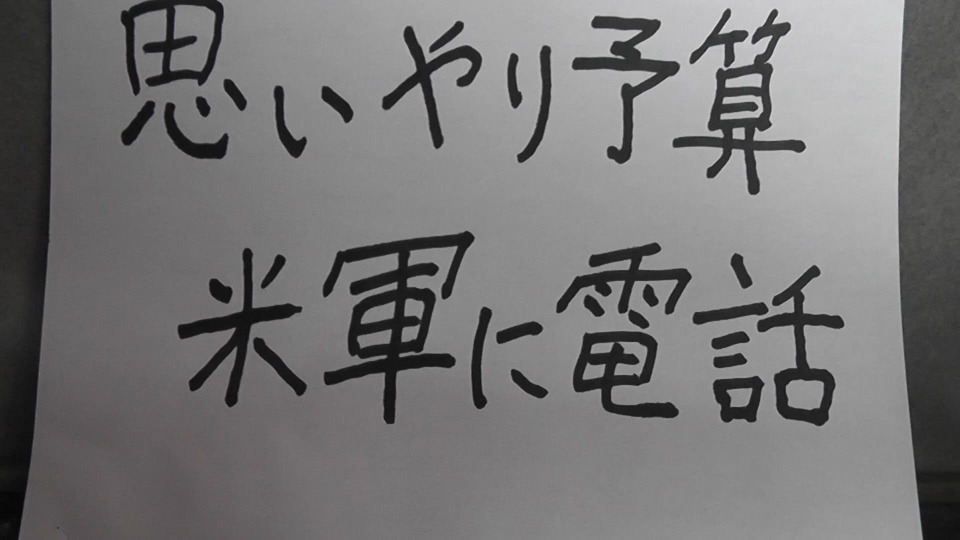 思いやり予算
米軍に電話